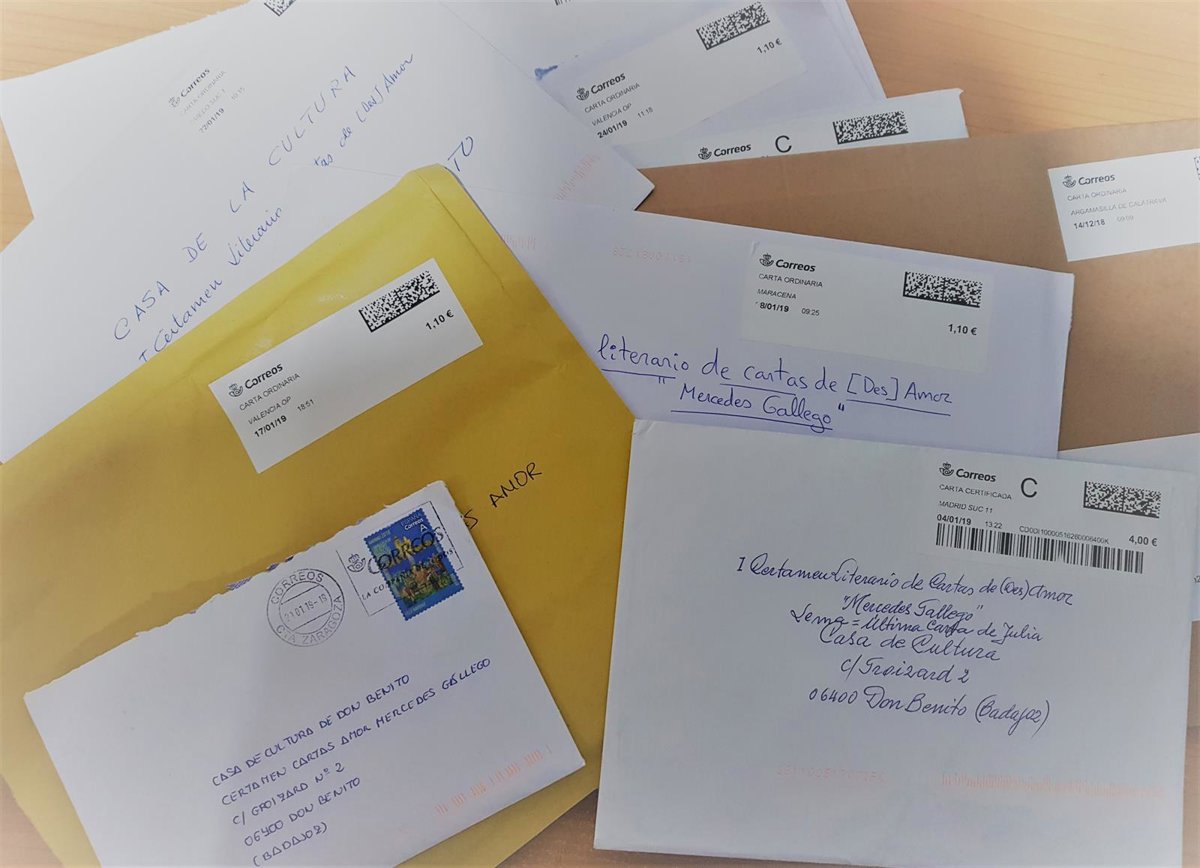 Correos
CARTA ORDINARIA
22/01/19 10:15
CASA DE LA CULTURA
I Certamen Literario
tas de [Des] Amor
TO
Correos
CARTA ORDINARIA
VALENCIA OP
24/01/19 11:18
1,10 €
Correos C
Correos
CARTA ORDINARIA
ARGAMASILLA DE CALATRAVA
14/12/18 09:09
Correos
CARTA ORDINARIA
MARACENA
8/01/19 09:25
1,10 €
literario de cartas de [Des] Amor
"Mercedes Gallego"
Correos
CARTA ORDINARIA
VALENCIA OP
17/01/19 18:51
1,10 €
S AMOR
Correos C
CARTA CERTIFICADA
MADRID SUC 11
04/01/19 13:22
4,00 €
I Certamen Literario de Cartas de (Des) Amor
"Mercedes Gallego"
Lema = Ultima Carta de Julia
Casa de Cultura
c/ Groizard 2
06400 Don Benito (Badajoz)
CORREOS
CTA ZARAGOZA
CORREOS
Correos
A
CASA DE CULTURA DE DON BENITO
CERTAMEN CARTAS AMOR MERCEDES GALLEGO
C/ GROIZARD Nº 2
06400 DON BENITO
(BADAJOZ)